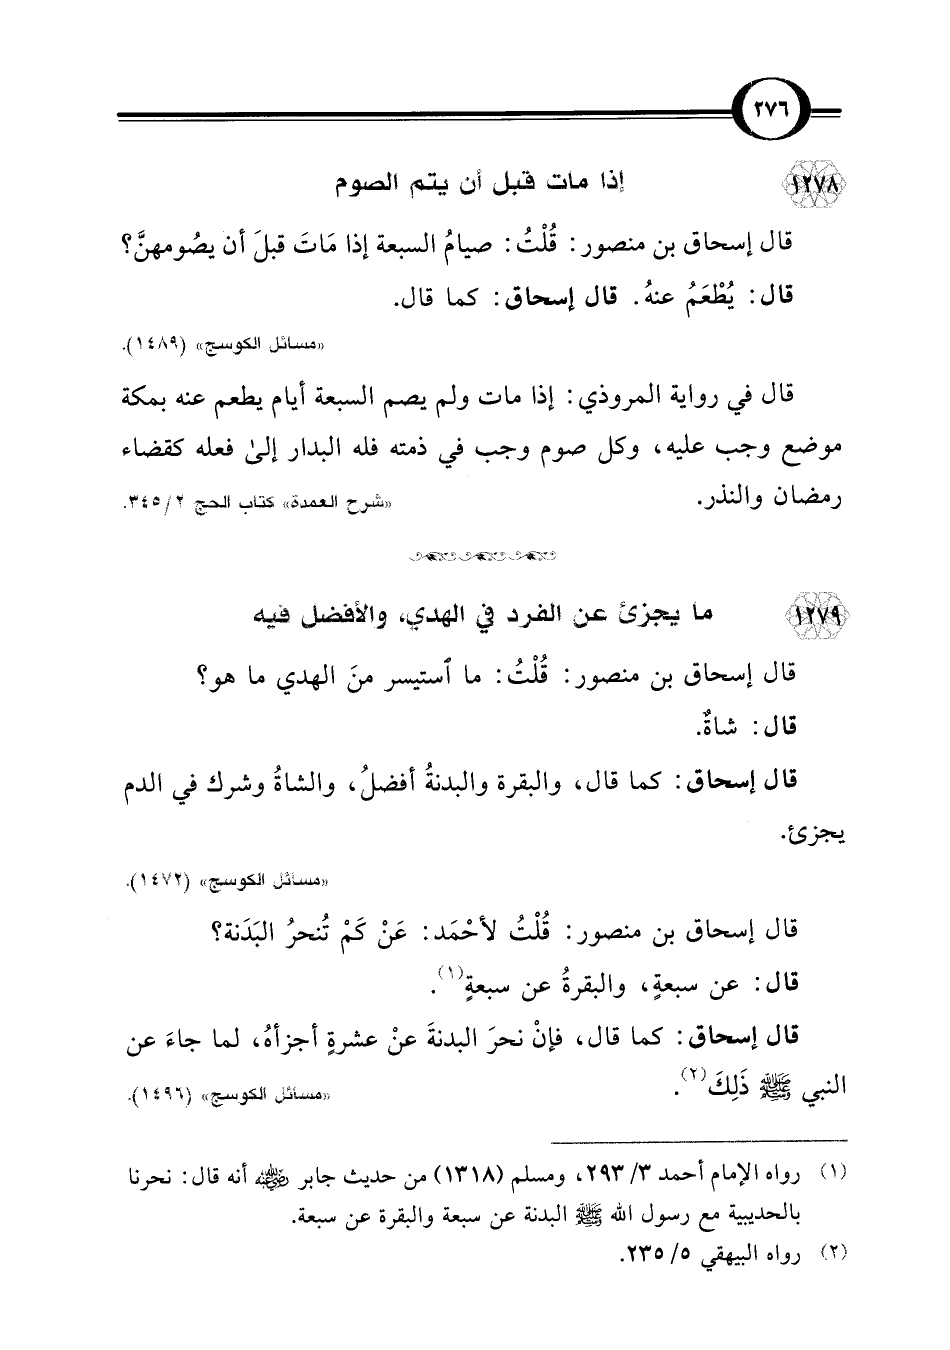 ٢٧٦
١٢٧٨ إذا مات قبل أن يتم الصوم
قال إسحاق بن منصور: قُلْتُ: صيامُ السبعة إذا مَاتَ قبلَ أن يصُومهنَّ؟
قال: يُطْعَمُ عنهُ. قال إسحاق: كما قال.
«مسائل الكوسج» (١٤٨٩).
قال في رواية المروذي: إذا مات ولم يصم السبعة أيام يطعم عنه بمكة
موضع وجب عليه، وكل صوم وجب في ذمته فله البدار إلىٰ فعله كقضاء
رمضان والنذر. «شرح العمدة» كتاب الحج ٢/ ٣٤٥.
١٢٧٩ ما يجزئ عن الفرد في الهدي، والأفضل فيه
قال إسحاق بن منصور: قُلْتُ: ما ٱستيسر منَ الهدي ما هو؟
قال: شاةٌ.
قال إسحاق: كما قال، والبقرة والبدنةُ أفضلُ، والشاةُ وشرك في الدم
يجزئ.
«مسائل الكوسج» (١٤٧٢).
قال إسحاق بن منصور: قُلْتُ لأحْمَد: عَنْ كَمْ تُنحرُ البَدَنة؟
قال: عن سبعةٍ، والبقرةُ عن سبعةٍ(١).
قال إسحاق: كما قال، فإنْ نحرَ البدنةَ عنْ عشرةٍ أجزأهُ، لما جاءَ عن
النبي ﷺ ذَلِكَ(٢). «مسائل الكوسج» (١٤٩٦).
(١) رواه الإمام أحمد ٣/ ٢٩٣، ومسلم (١٣١٨) من حديث جابر رضي الله عنه أنه قال: نحرنا
بالحديبية مع رسول الله ﷺ البدنة عن سبعة والبقرة عن سبعة.
(٢) رواه البيهقي ٥/ ٢٣٥.